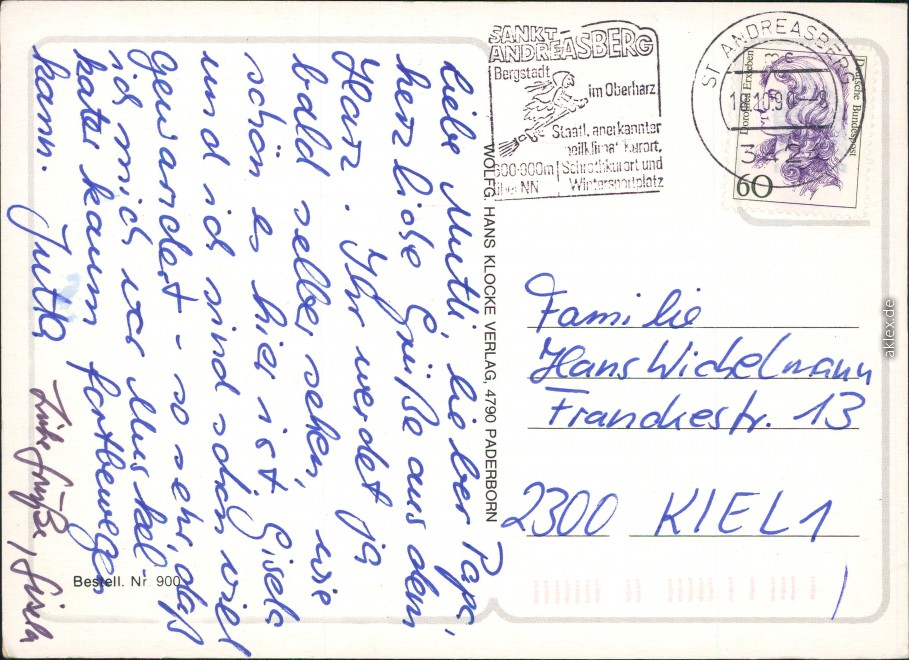 Liebe Mutti, lieber Papa,
herzliche Grüße aus dem
Harz. Ihr werdet ja
bald selber sehen, wie
schön es hier ist. Gisela
und ich sind schon viel
gewandert - so sehr, daß
ich mich vor Muskel-
kater kaum fortbewegen
kann. Jutta
Liebe Grüße, Gisela
Bestell. Nr. 900
WOLFG. HANS KLOCKE VERLAG, 4790 PADERBORN
SANKT
ANDREASBERG
Bergstadt
im Oberharz
Staatl. anerkannter
heilklimat. Kurort,
600-900m Schrothkurort und
über NN Wintersportplatz
ST ANDREASBERG
18.10.90-8
3424
Deutsche Bundespost
Dorothea Erxleben
60
Familie
Hans Wichelmann
Franckestr. 13
2300 KIEL 1
aklex.de